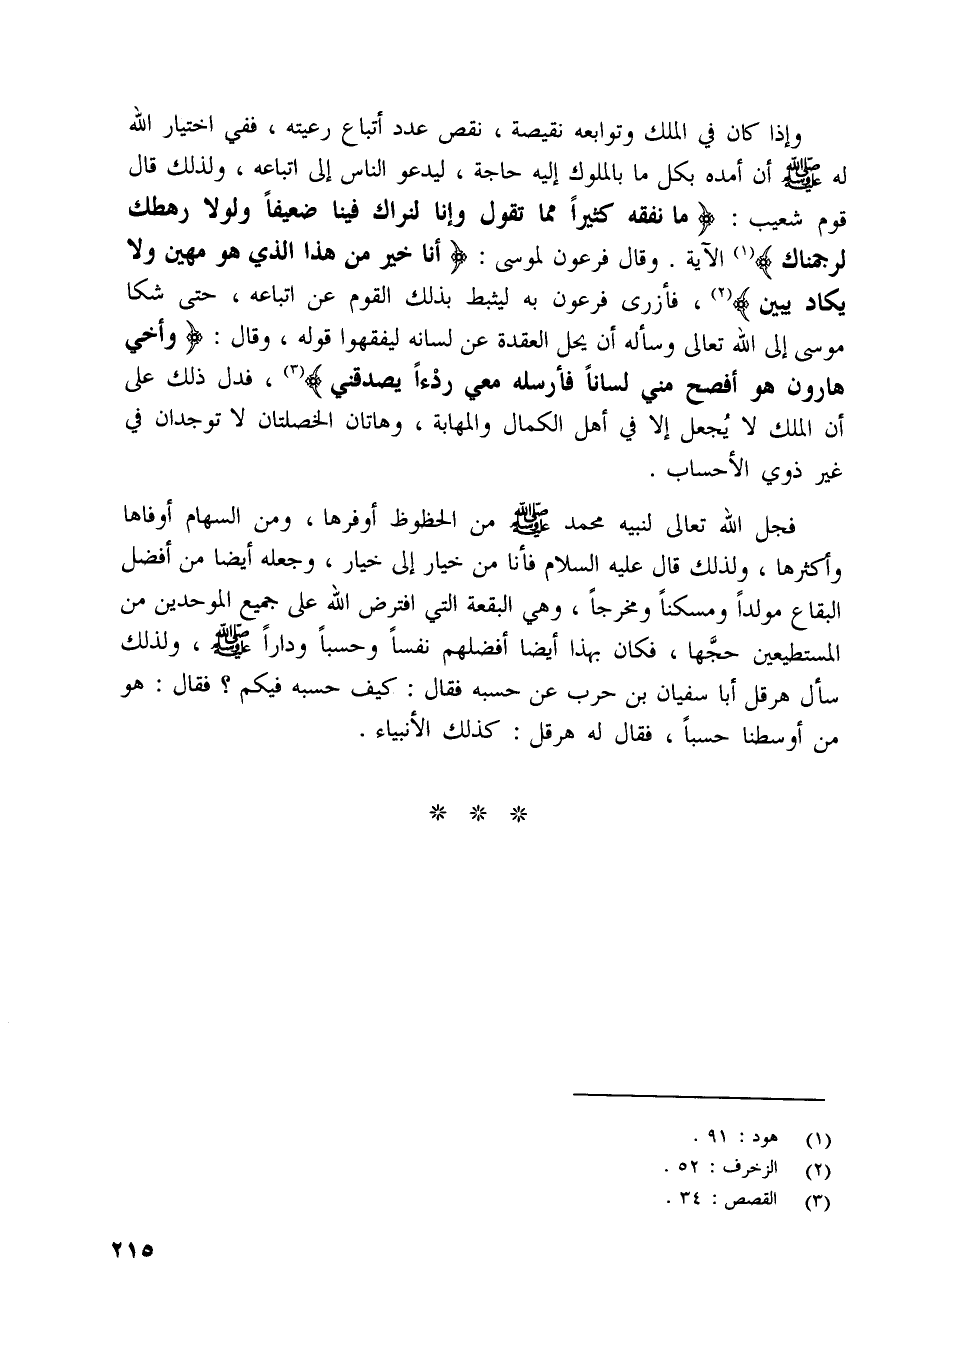 وإذا كان في الملك وتوابعه نقيصة ، نقص عدد أتباع رعيته ، ففي اختيار الله
له ﷺ أن أمده بكل ما بالملوك إليه حاجة ، ليدعو الناس إلى اتباعه ، ولذلك قال
قوم شعيب : ﴿ ما نفقه كثيراً مما تقول وإنا لنراك فينا ضعيفاً ولولا رهطك
لرجمناك ﴾(١) الآية . وقال فرعون لموسى : ﴿ أنا خير من هذا الذي هو مهين ولا
يكاد يبين ﴾(٢) ، فأزرى فرعون به ليثبط بذلك القوم عن اتباعه ، حتى شكا
موسى إلى الله تعالى وسأله أن يحل العقدة عن لسانه ليفقهوا قوله ، وقال : ﴿ وأخي
هارون هو أفصح مني لساناً فأرسله معي ردْءاً يصدقني ﴾(٣) ، فدل ذلك على
أن الملك لا يُجعل إلا في أهل الكمال والمهابة ، وهاتان الخصلتان لا توجدان في
غير ذوي الأحساب .
فجل الله تعالى لنبيه محمد ﷺ من الحظوظ أوفرها ، ومن السهام أوفاها
وأكثرها ، ولذلك قال عليه السلام فأنا من خيار إلى خيار ، وجعله أيضا من أفضل
البقاع مولداً ومسكناً ومخرجاً ، وهي البقعة التي افترض الله على جميع الموحدين من
المستطيعين حجَّها ، فكان بهذا أيضا أفضلهم نفساً وحسباً وداراً ﷺ ، ولذلك
سأل هرقل أبا سفيان بن حرب عن حسبه فقال : كيف حسبه فيكم ؟ فقال : هو
من أوسطنا حسباً ، فقال له هرقل : كذلك الأنبياء .
* * *
(١) هود : ٩١ .
(٢) الزخرف : ٥٢ .
(٣) القصص : ٣٤ .
٢١٥